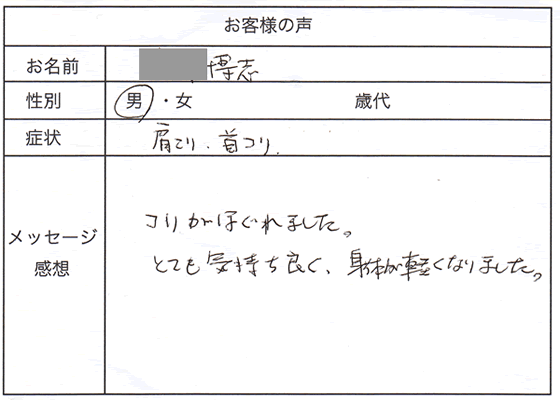 お客様の声
お名前 博志
性別 男・女 歳代
症状 肩こり、首コリ.
メッセージ
感想
コリがほぐれました。
とても気持ち良く、身体が軽くなりました。